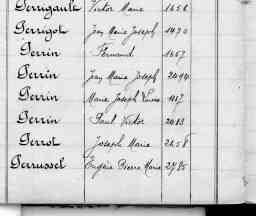 Perrigault Victor Marie 1656
Perrigot Jean Marie Joseph 1490
Perrin Fernand 1657
Perrin Jean Marie Joseph
Perrin Marie Joseph
Perrin Paul Victor
Perrot Joseph Marie
Perrussel Eugène Pierre Marie